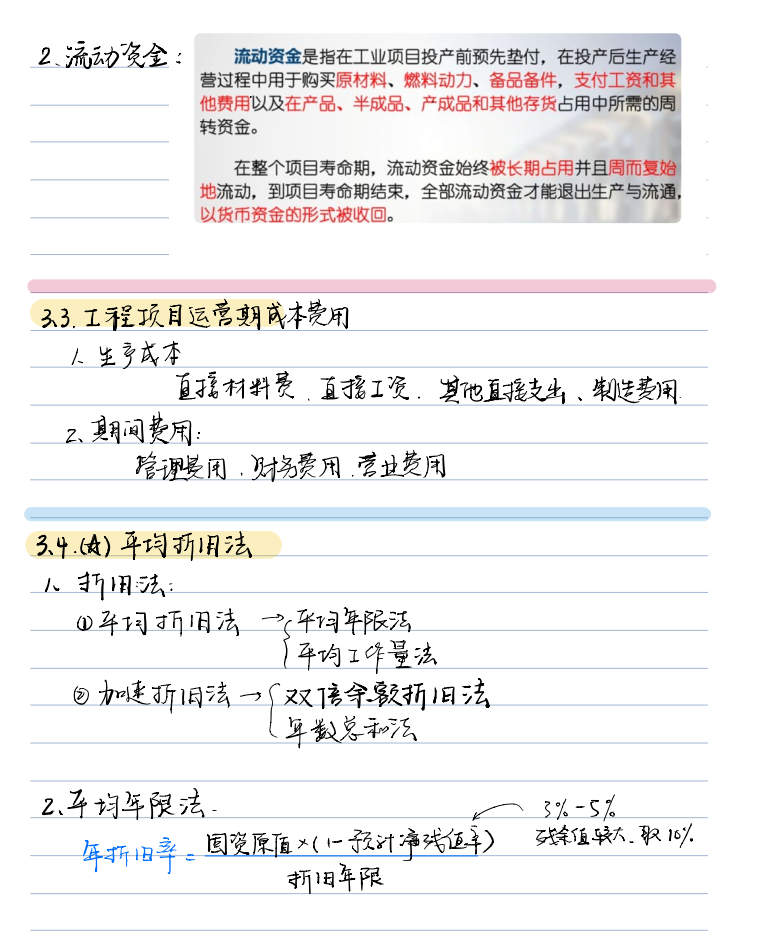 2.流动资金:
流动资金是指在工业项目投产前预先垫付，在投产后生产经
营过程中用于购买原材料、燃料动力、备品备件，支付工资和其
他费用以及在产品、半成品、产成品和其他存货占用中所需的周
转资金。
在整个项目寿命期，流动资金始终被长期占用并且周而复始
地流动，到项目寿命期结束，全部流动资金才能退出生产与流通，
以货币资金的形式被收回。
3.3.工程项目运营期成本费用
1.生产成本
直接材料费、直接工资、其他直接支出、制造费用.
2.期间费用:
管理费用、财务费用、营业费用
3.4.(A)平均折旧法
1.折旧法:
①平均折旧法→{平均年限法
平均工作量法
②加速折旧法→{双倍余额折旧法
年数总和法
2.平均年限法.
3%-5%
残余值较大、取10%.
年折旧率=固资原值×(1-预计净残值率)
折旧年限